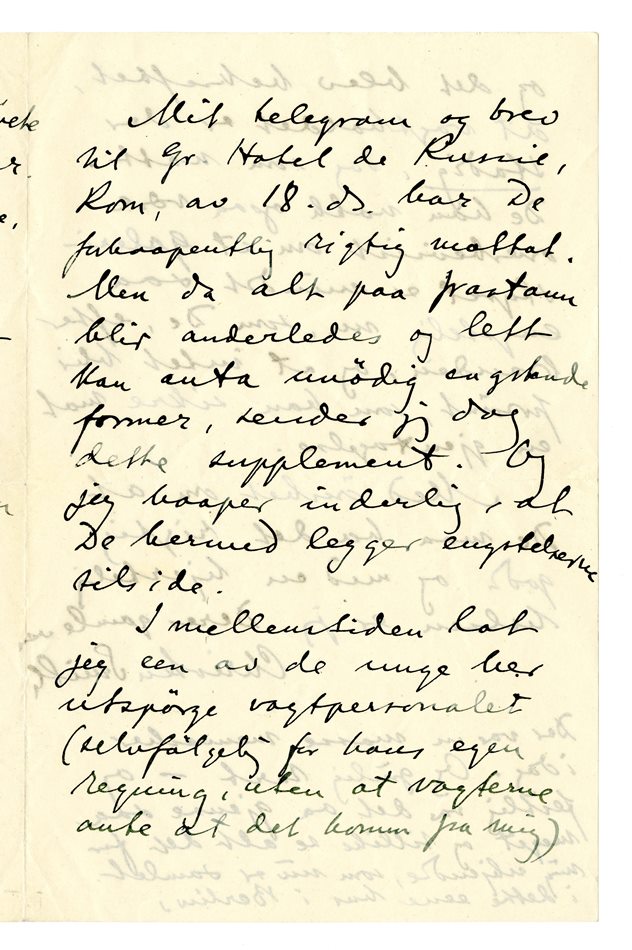 Mit telegram og brev
til Gr Hotel de Russie,
Rom, av 18. ds. har De
forhaapentlig rigtig mottat.
Men da alt paa frastann
blir anderledes og lett
kan anta unödig engstende
former, sender jeg dog
dette supplement. Og
jeg haaper inderlig, at
De hermed legger engstelserne
tilside.
I mellemtiden lot
jeg een av de unge her
utspörge vagtpersonalet
(selvfölgelig for hans egen
regning, uten at vagterne
ante at det komm fra mig)